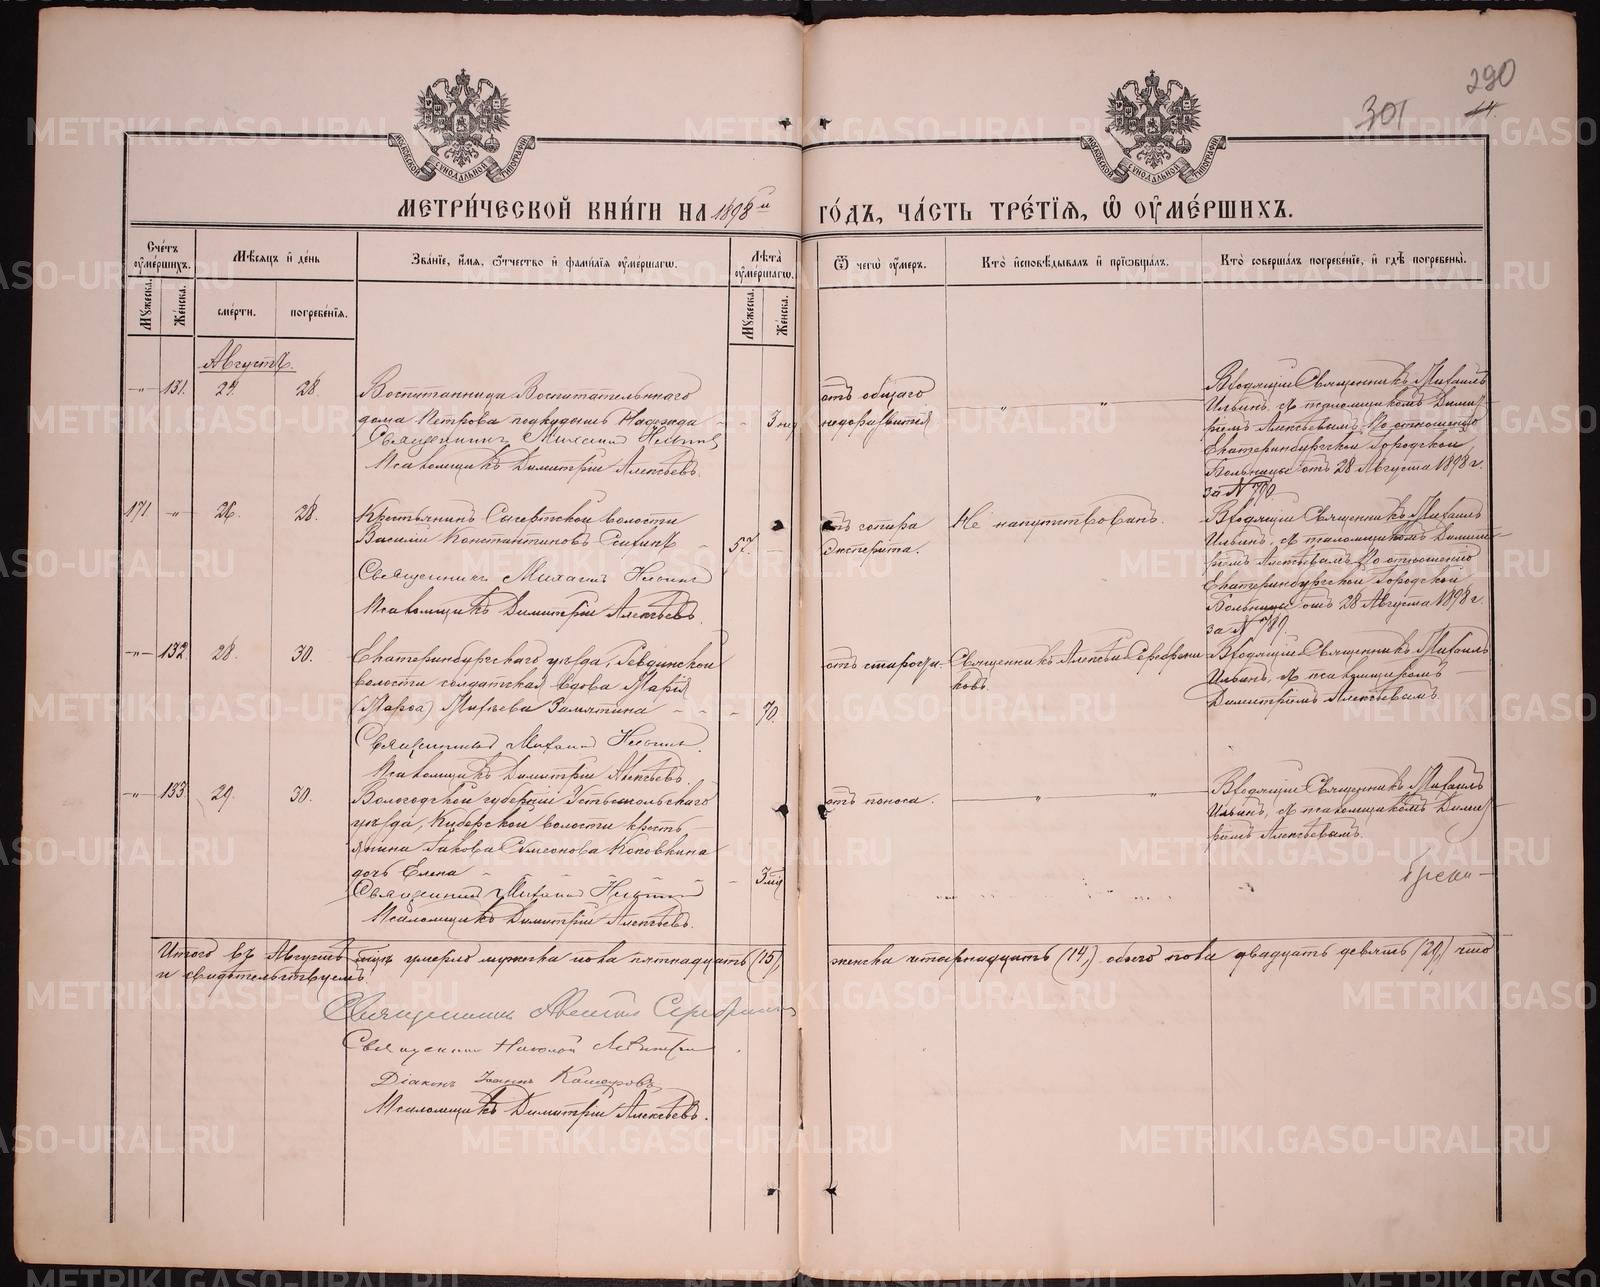 METRIKI.GASO-URAL.RU
290
301
14.
МОСКОВСКОЙ СѴНОДАЛЬНОЙ ТИПОГРАФІИ
МОСКОВСКОЙ СѴНОДАЛЬНОЙ ТИПОГРАФІИ
МЕТРИ́ЧЕСКОЙ КНИ́ГИ НА 1898й ГО́ДЪ, ЧА́СТЬ ТРЕ́ТІЯ, Ѡ ОУМЕ́РШИХЪ.
Сче́тъ оуме́ршихъ.
Мꙋжеска.
Же́нска.
Мѣ́сяцъ и де́нь
сме́рти.
погребе́нія.
Зва́ніе, и́мя, ѻ́тчество и фами́лія оуме́ршагѡ.
Лѣ́та оуме́ршагѡ.
Мꙋжеска.
Же́нска.
Ѿ чегѡ̀ оу́меръ.
Кто̀ исповѣ́дывалъ и пріѡбща́лъ.
Кто̀ соверша́лъ погребе́ніе, и гдѣ̀ погребены̀.
Августъ
-"- 131. 27. 28.
Воспитанница Воспитательнаго
дома Петрова подкидышъ Надежда - - 3 нед
Священникъ Михаилъ Ильинъ
Псаломщикъ Димитрій Алексѣевъ.
отъ общаго
недоразвитія
" "
Входящій Священникъ Михаилъ
Ильинъ, съ псаломщикомъ Дими
ріемъ Алексѣевымъ. По отношенію
Екатеринбургской Городской
Больницы отъ 28 Августа 1898 г.
за № 790.
171. -"- 26. 28.
Крестьянинъ Сысертской волости
Василій Константиновъ - 57. -
Священникъ Михаилъ Ильинъ
Псаломщикъ Димитрій Алексѣевъ.
Не напутствованъ.
Входящій Священникъ Михаилъ
Ильинъ, съ псаломщикомъ Димит
ріемъ Алексѣевымъ По отношенію
Екатеринбургской Городской
Больницы отъ 28 Августа 1898 г.
за № 789.
-"- 132 28. 30.
Екатеринбургскаго уѣзда, Ревдинской
волости солдатская вдова Марія
(Марѳа) Замятина - - - 70.
Священникъ Михаилъ Ильинъ.
Псаломщикъ Димитрій Алексѣевъ.
отъ старости
Священникъ Алексѣй Серебрени
ковъ.
Входящій Священникъ Михаилъ
Ильинъ, съ псаломщикомъ
Димитріемъ Алексѣевымъ.
-"- 133. 29. 30.
Вологодской губерніи Устьсысольскаго
уѣзда, Киберской волости кресть-
янина Іакова Сумеонова Коковкина
дочь Елена - - 3 мѣс
Священникъ Михаилъ Ильинъ
Псаломщикъ Димитрій Алексѣевъ.
отъ поноса.
" "
Входящій Священникъ Михаилъ
Ильинъ, съ псаломщикомъ Дими
ріемъ Алексѣевымъ.
Итого въ Августѣ мцѣ умерло мужеска пола пятнадцать (15), женска четырнадцать (14), обоего пола двадцать девять (29), что
и свидѣтельствуемъ.
Священникъ Алексѣй Серебрени
Священникъ Николай
Діаконъ Іоаннъ
Псаломщикъ Димитрій Алексѣевъ.